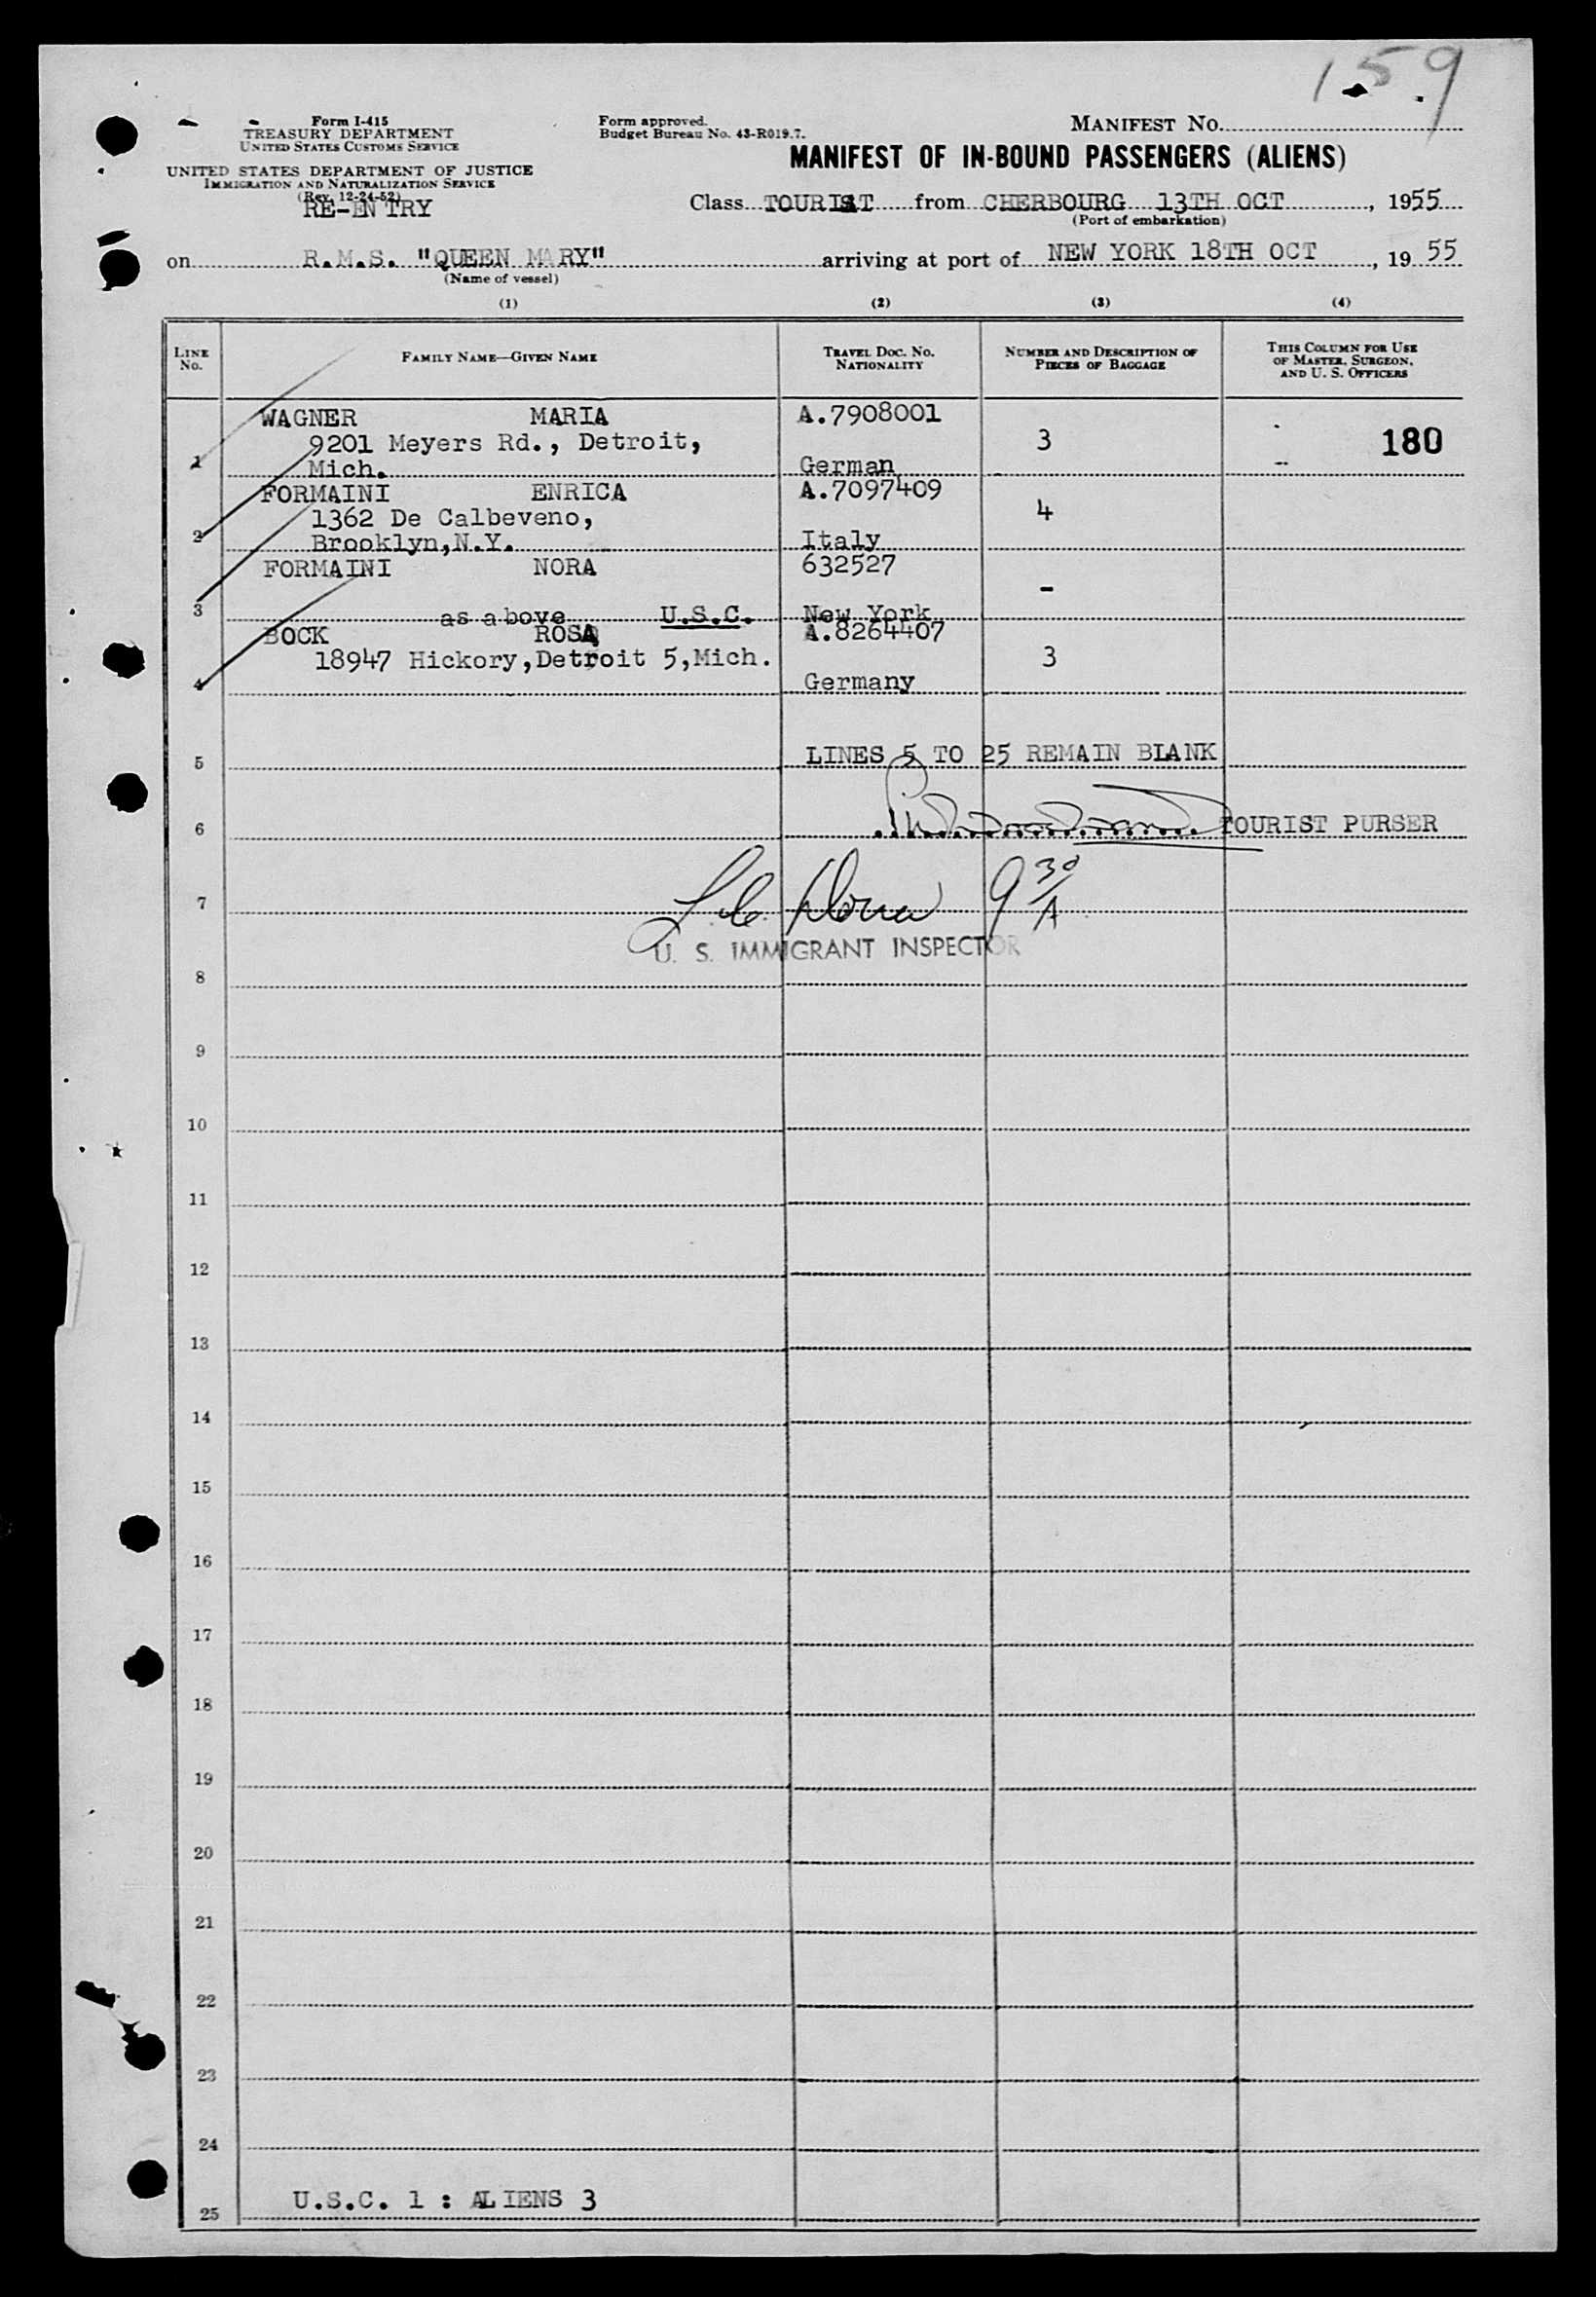 159
Form I-415
TREASURY DEPARTMENT
UNITED STATES CUSTOMS SERVICE
UNITED STATES DEPARTMENT OF JUSTICE
IMMIGRATION AND NATURALIZATION SERVICE
(Rev. 12-24-52)
RE-ENTRY
Form approved.
Budget Bureau No. 43-R019.7.
MANIFEST NO.
MANIFEST OF IN-BOUND PASSENGERS (ALIENS)
Class TOURIST from CHERBOURG 13TH OCT, 1955
(Port of embarkation)
on R.M.S. "QUEEN MARY" arriving at port of NEW YORK 18TH OCT, 19 55
(Name of vessel)
(1) (2) (3) (4)
LINE No. FAMILY NAME—GIVEN NAME TRAVEL DOC. NO. NATIONALITY NUMBER AND DESCRIPTION OF PIECES OF BAGGAGE THIS COLUMN FOR USE OF MASTER, SURGEON, AND U. S. OFFICERS
WAGNER MARIA A.7908001
9201 Meyers Rd., Detroit, 3 180
1 Mich. German
FORMAINI ENRICA A.7097409
1362 De Calbeveno, 4
2 Brooklyn,N.Y. Italy
FORMAINI NORA 632527
-
3 as above U.S.C. New York
BOCK ROSA A.8264407
18947 Hickory,Detroit 5,Mich. 3
4 Germany
5 LINES 5 TO 25 REMAIN BLANK
6 TOURIST PURSER
7 9 30/A
U. S. IMMIGRANT INSPECTOR
8
9
10
11
12
13
14
15
16
17
18
19
20
21
22
23
24
25 U.S.C. 1 : ALIENS 3